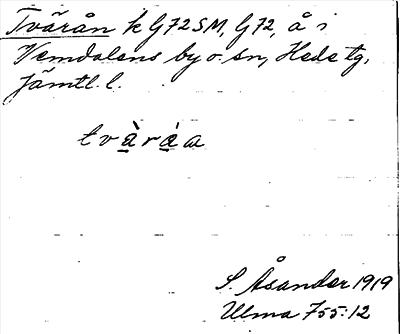 Tvärån k G72SM, G72, å i
Vemdalens by o. sn, Hede tg,
Jämtl. l.
tvä̀ráa
S. Åsander 1919
Ulma 755:12